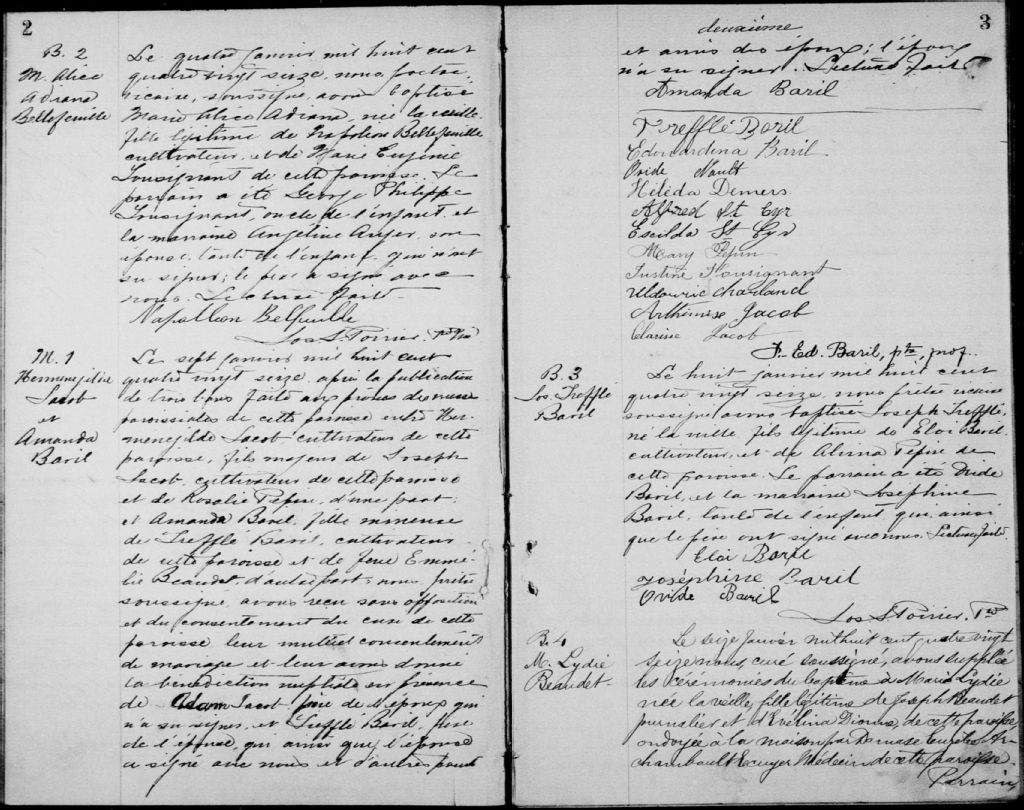 2
B. 2
M. Alice
Adiana
Bellefeuille
Le quatre janvier mil huit cent
quatre vingt seize, nous prêtre,
vicaire, soussigné, avons baptisé
Marie Alice Adiana, née la veille
fille légitime de Napoléon Bellefeuille
cultivateur, et de Marie Eugénie
Lousignant de cette paroisse. Le
parrain a été George Philippe
Lousignant, oncle de l'enfant, et
la marraine Angéline Auger, son
épouse, tante de l'enfant, qui n'ont
su signer; le père a signé avec
nous. Lecture faite
Napolleon Belfeuille
Jos. S. Poirier,
M. 1
Hermenegilde
Jacob
et
Amanda
Baril
Le sept janvier mil huit cent
quatre vingt seize, après la publication
de trois bans faite aux prônes des messes
paroissiales de cette paroisse entre Her-
menegilde Jacob cultivateur de cette
paroisse, fils majeur de Joseph
Jacob, cultivateur de cette paroisse
et de Rosalie Pepin, d'une part;
et Amanda Baril, fille mineure
de Trefflé Baril, cultivateur
de cette paroisse et de feue Emmé-
lie Beaudet, d'autre part, nous prêtre
soussigné, avons reçu sans opposition
et du consentement du curé de cette
paroisse leur mutuel consentement
de mariage et leur avons donné
la bénédiction nuptiale en présence
de Adam Jacob, père de l'époux qui
n'a su signer, et Trefflé Baril, père
de l'épouse, qui ainsi que l'épouse
a signé avec nous et d'autres parents
3
deuxième
et amis des époux; l'époux
n'a su signer. Lecture faite
Amanda Baril
Trefflé Baril
Edouardina Baril
Ovide Nault
Hileda Demers
Alfred St Cyr
Escilda St Cyr
Mary Pepin
Justine Lousignant
Uldouric Charland
Arthémise Jacob
Clarisse Jacob
F. Ed. Baril, ptre, prof.
B. 3
Jos. Trefflé
Baril
Le huit janvier mil huit cent
quatre vingt seize, nous prêtre vicaire
soussigné avons baptisé Joseph Trefflé,
né la veille fils légitime de Eloi Baril
cultivateur, et de Alvina Pepin de
cette paroisse. Le parrain a été Ovide
Baril, et la marraine Joséphine
Baril, tante de l'enfant, qui ainsi
que le père ont signé avec nous. Lecture faite
Eloi Baril
Joséphine Baril
Ovide Baril
Jos. S. Poirier, Ptre
B. 4
M. Lydie
Beaudet
Le seize Janvier mil huit cent quatre vingt
seize nous, curé soussigné, avons suppléé
les cérémonies du baptême à Marie Lydie
née la veille, fille légitime de Joseph Beaudet
journalier et d'Evélina Dionne, de cette paroisse,
ondoyée à la maison par Ar-
chambault Ecuyer Médecin de cette paroisse.
Parrain,